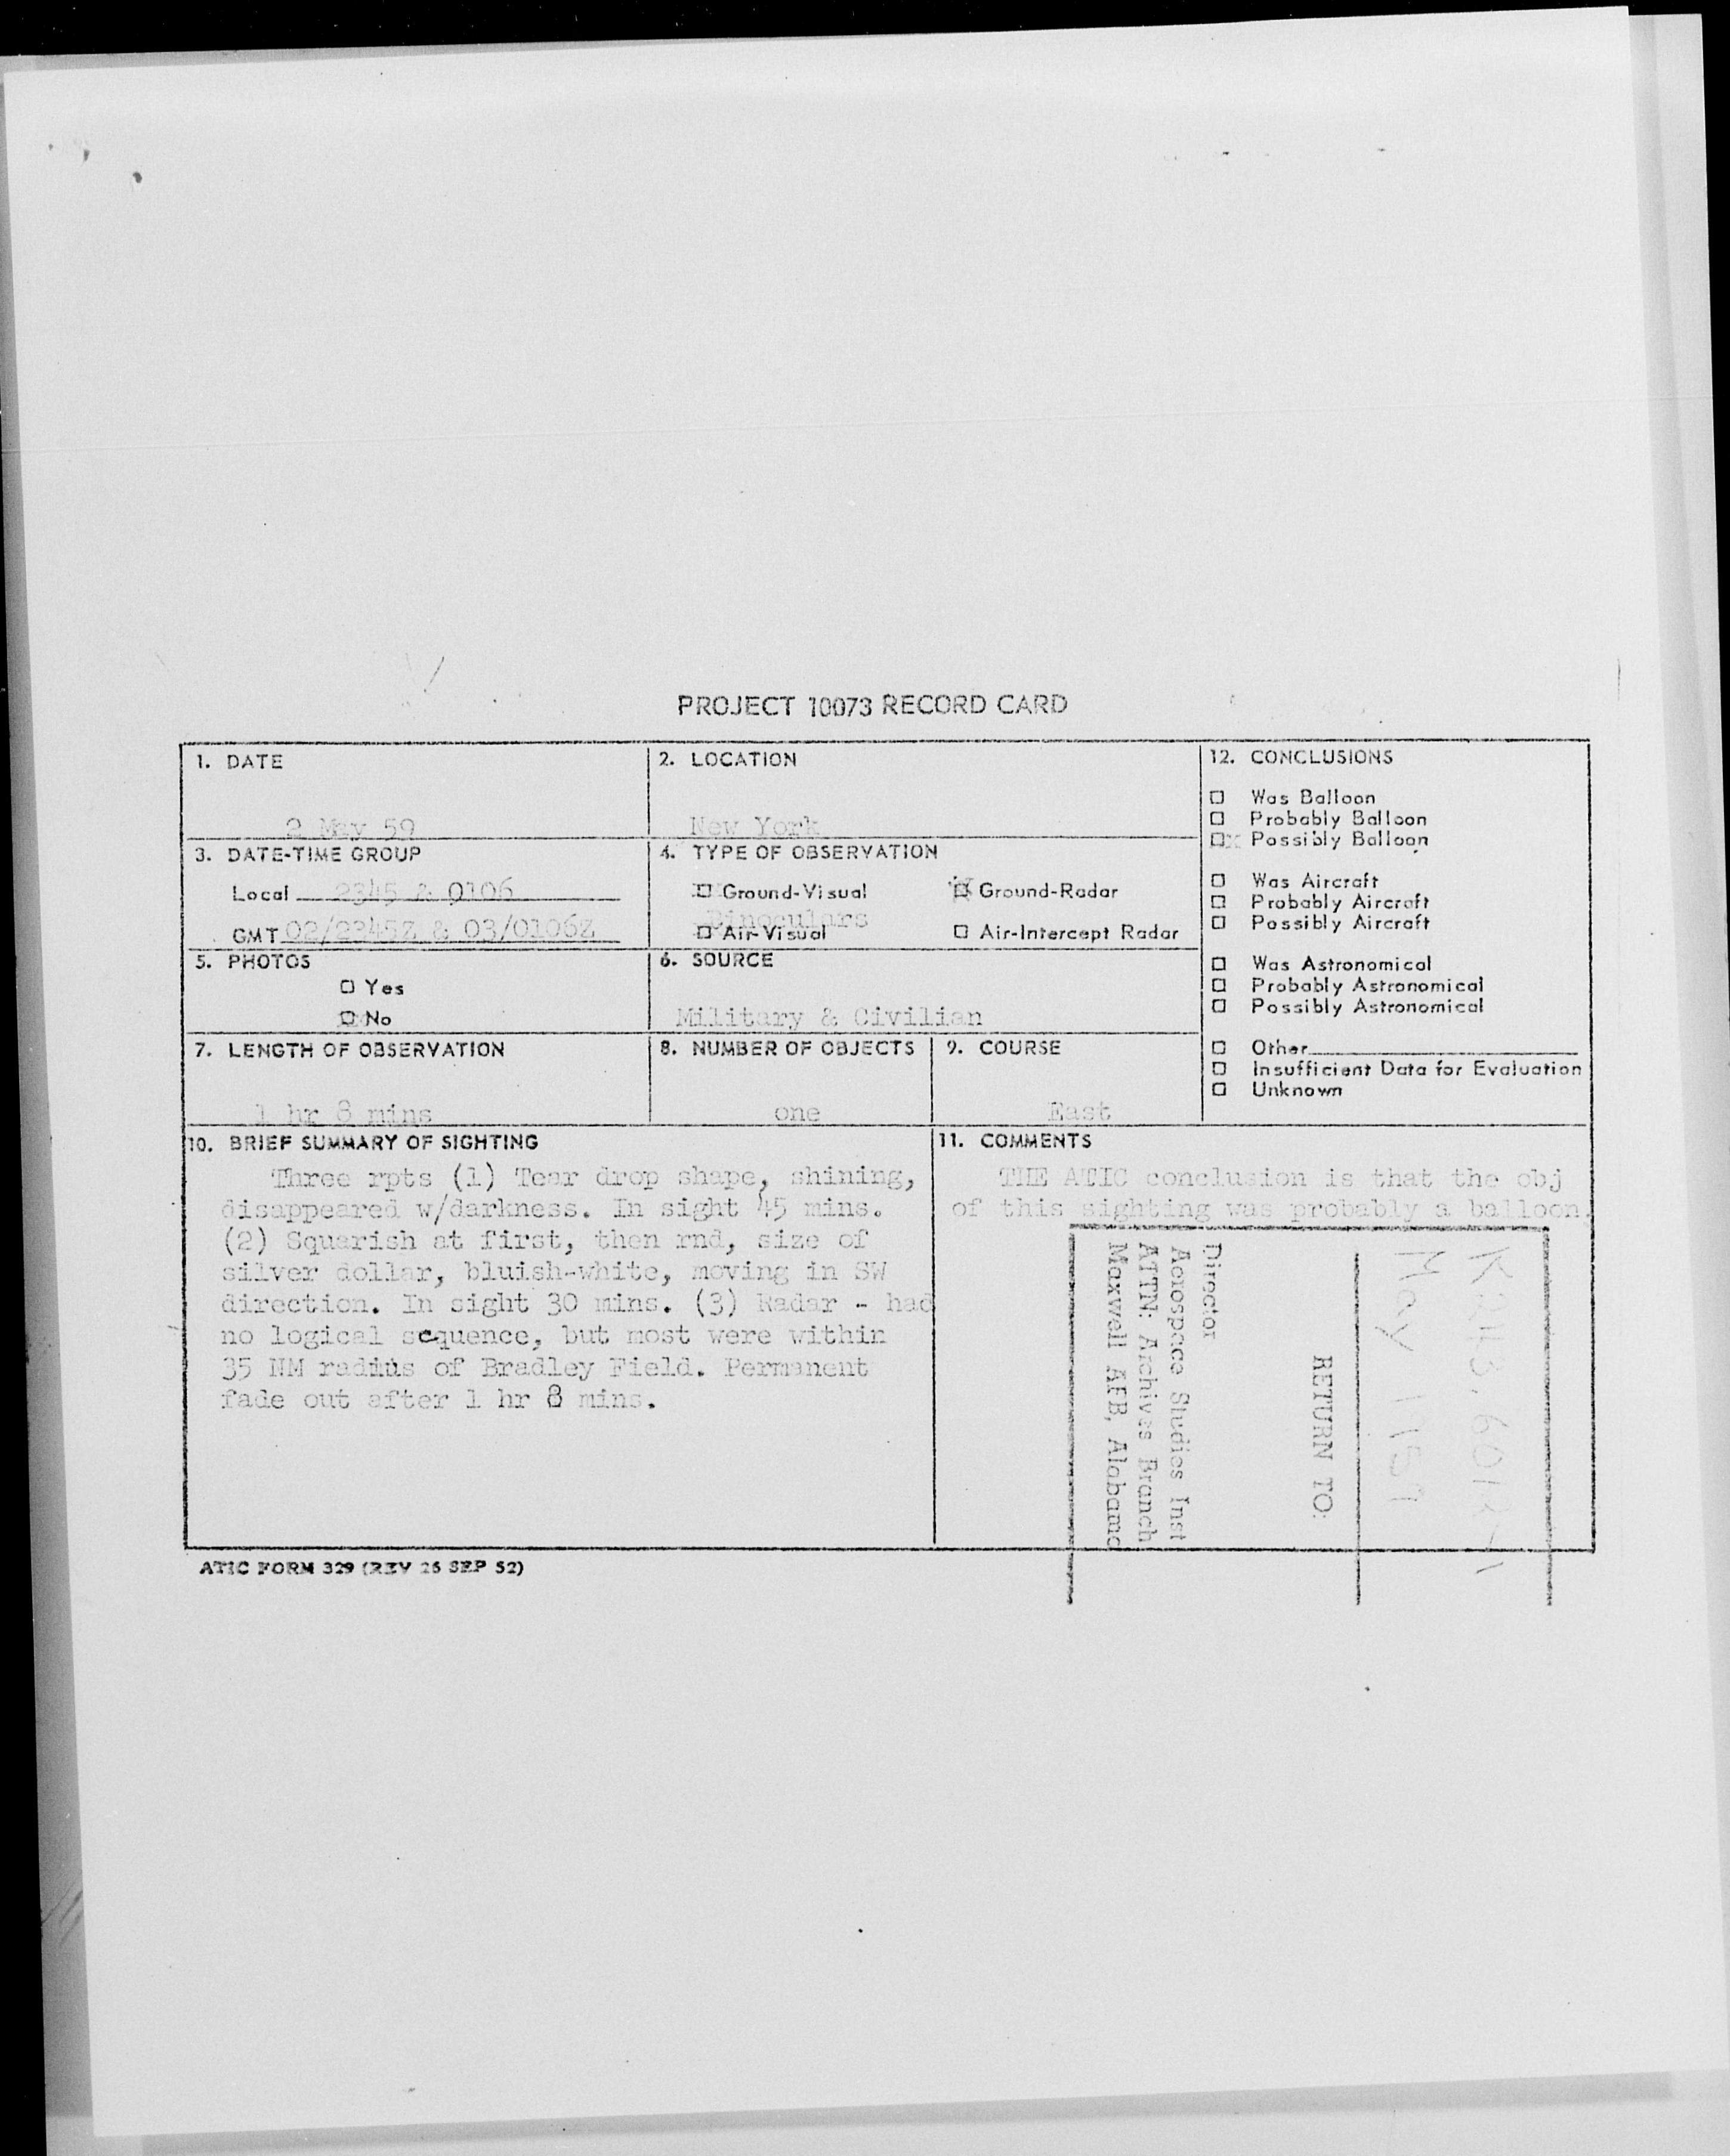 PROJECT 10073 RECORD CARD
1. DATE
2 May 59
2. LOCATION
New York
3. DATE-TIME GROUP
Local 2345 & 0106
GMT 02/2345Z & 03/0106Z
4. TYPE OF OBSERVATION
☒ Ground-Visual ☒ Ground-Radar
Binoculars
☐ Air-Visual ☐ Air-Intercept Radar
5. PHOTOS
☐ Yes
☒ No
6. SOURCE
Military & Civilian
7. LENGTH OF OBSERVATION
1 hr 8 mins
8. NUMBER OF OBJECTS
one
9. COURSE
East
12. CONCLUSIONS
☐ Was Balloon
☐ Probably Balloon
☒ Possibly Balloon
☐ Was Aircraft
☐ Probably Aircraft
☐ Possibly Aircraft
☐ Was Astronomical
☐ Probably Astronomical
☐ Possibly Astronomical
☐ Other
☐ Insufficient Data for Evaluation
☐ Unknown
10. BRIEF SUMMARY OF SIGHTING
Three rpts (1) Tear drop shape, shining,
disappeared w/darkness. In sight 45 mins.
(2) Squarish at first, then rnd, size of
silver dollar, bluish-white, moving in SW
direction. In sight 30 mins. (3) Radar - had
no logical sequence, but most were within
35 NM radius of Bradley Field. Permanent
fade out after 1 hr 8 mins.
11. COMMENTS
THE ATIC conclusion is that the obj
of this sighting was probably a balloon.
May 1959
RETURN TO:
Director
Aerospace Studies Inst
ATTN: Archives Branch
Maxwell AFB, Alabama
ATIC FORM 329 (REV 26 SEP 52)